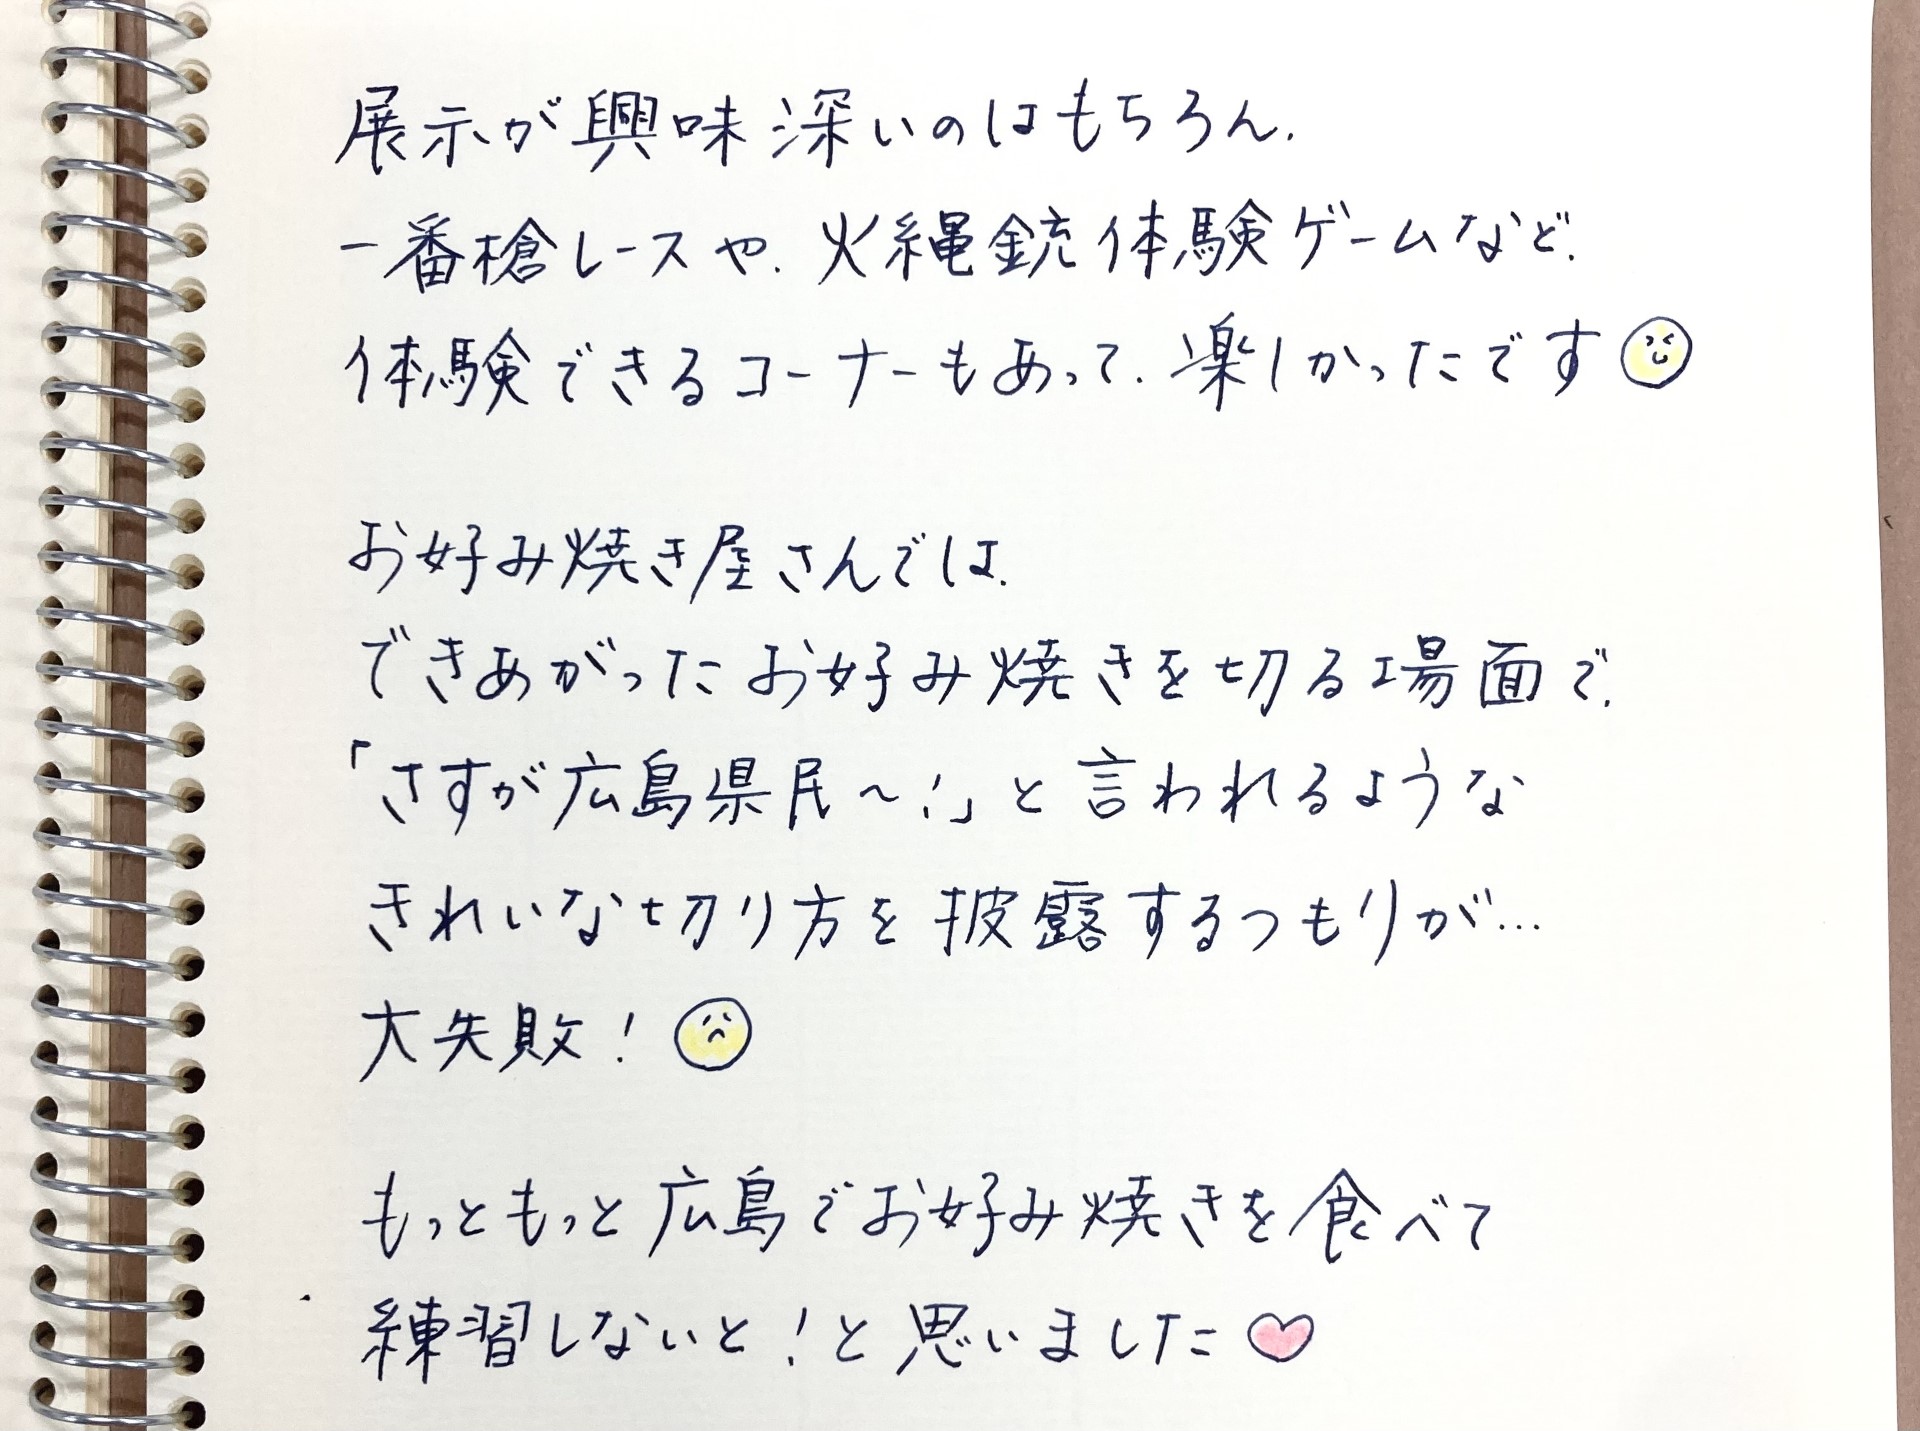 展示が興味深いのはもちろん、
一番槍レースや、火縄銃体験ゲームなど、
体験できるコーナーもあって、楽しかったです
お好み焼き屋さんでは、
できあがったお好み焼きを切る場面で、
「さすが広島県民〜！」と言われるような
きれいな切り方を披露するつもりが…
大失敗！
もっともっと広島でお好み焼きを食べて
練習しないと！と思いました